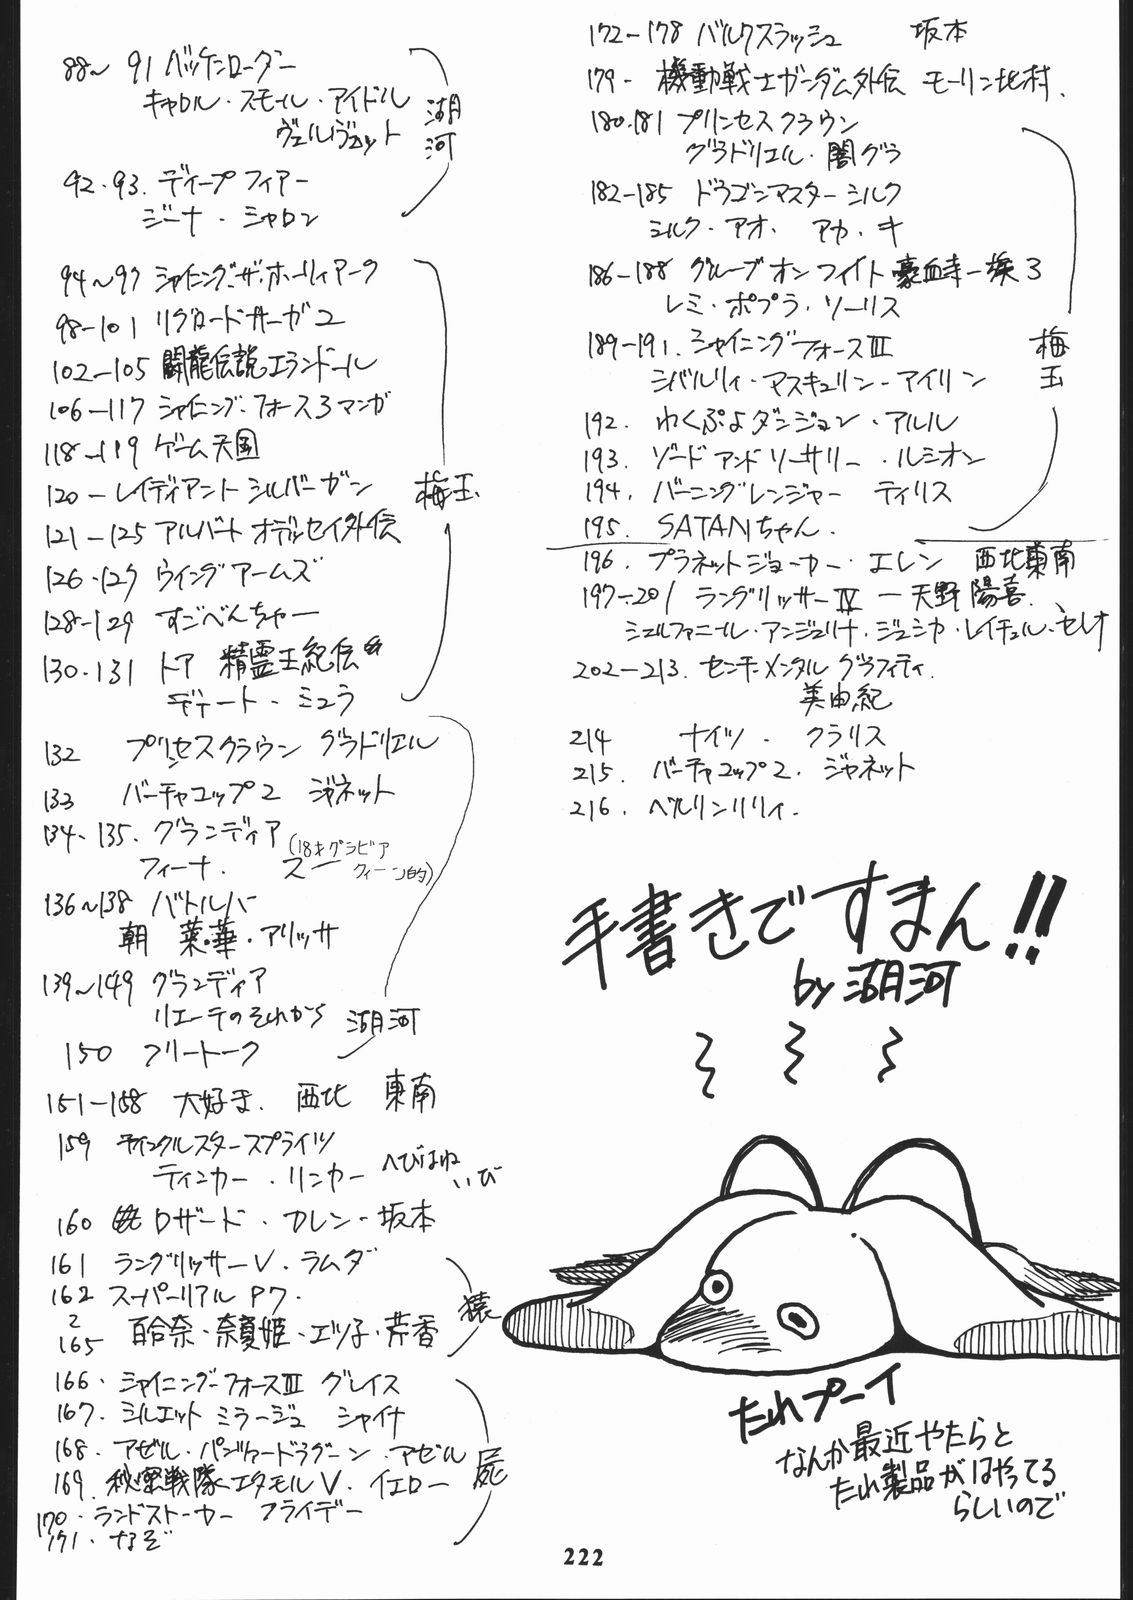 88～91 バッケンローダー
キャロル・スモール・アイドル
ヴェルヴェット
湖河
92・93. ディープフィアー
ジーナ・シャロン
94～97 シャイニング・ザ・ホーリィアーク
98-101 リグロードサーガ2
102-105 闘龍伝説エランドール
106-117 シャイニング・フォース3マンガ
118-119 ゲーム天国
120- レイディアントシルバーガン
梅玉
121-125 アルバートオデッセイ外伝
126・127 ウイングアームズ
128-129 すごべんちゃー
130・131 トア 精霊王紀伝
デナート・ミュラ
132 プリンセスクラウン グラドリエル
133 バーチャコップ2 ジャネット
134-135. グランディア
フィーナ. スー (18才グラビアクィーン的)
136～138 バトルバ
朝 菜・華・アリッサ
139～149 グランディア
リエーテのそれから 湖河
150 フリートーク
151-158 大好き. 西北 東南
159 ティンクルスタースプライツ
ティンカー・リンカー へびはねいび
160 ロザード・カレン-坂本
161 ラングリッサーV・ラムダ
162 スーパーリアルP7.
165 百合奈・奈夏姫・エツ子・芹香
猿
166・シャイニングフォースIII グレイス
167. シルエットミラージュ シャイナ
168・アゼル・パンツァードラグーン・アゼル
屍
169. 秘密戦隊メタモルV・イエロー
170・ランドストーカー フライデー
171・なぞ
172-178 バルクスラッシュ 坂本
179- 機動戦士ガンダム外伝 モーリン北村.
180.181 プリンセスクラウン
グラドリエル・闇グラ
182-185 ドラゴンマスターシルク
シルク・アオ. アカ・キ
186-188 グルーブオンファイト 豪血寺一族3
レミ・ポプラ・ソーリス
189-191. シャイニングフォースIII
シバルリィ・アスキュリン-アイリン
梅玉
192. わくぷよダンジョン・アルル
193. ソードアンドソーサリー・ルシオン
194. バーニングレンジャー ティリス
195. SATANちゃん.
196. プラネットジョーカー・エレン 西北東南
197-201 ラングリッサーIV-天野陽喜.
シェルファニール・アンジェリナ・ジェシカ・レイチェル・セレナ
202-213. センチメンタルグラフィティ.
美由紀
214 ナイツ・クラリス
215. バーチャコップ2. ジャネット
216. ベルリンリリィ.
手書きですまん!!
by 湖河
たれプーイ
なんか最近やたらと
たれ製品がはやってる
らしいので
222